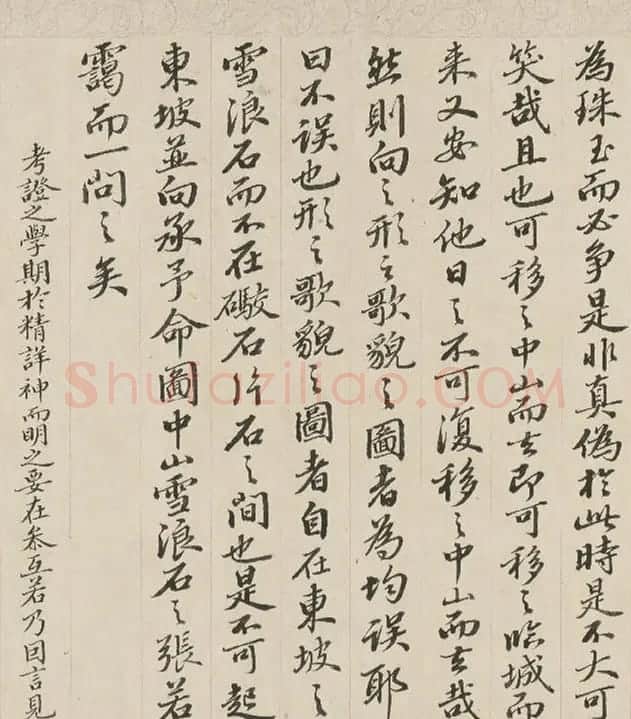 為珠玉而必争是非真偽於此時是不大可
笑哉且也可移之中山而去即可移之臨城而
来又安知他日之不可復移之中山而去哉
然則向之形之歌貌之圖者為均误耶
曰不误也形之歌貌之圖者自在東坡之
雪浪石而不在礮石片石之間也是不可起
東坡並向承予命圖中山雪浪石之張若
靄而一問之矣
考證之學期於精詳神而明之要在叅互若乃因言見
Shufaziliao.COM